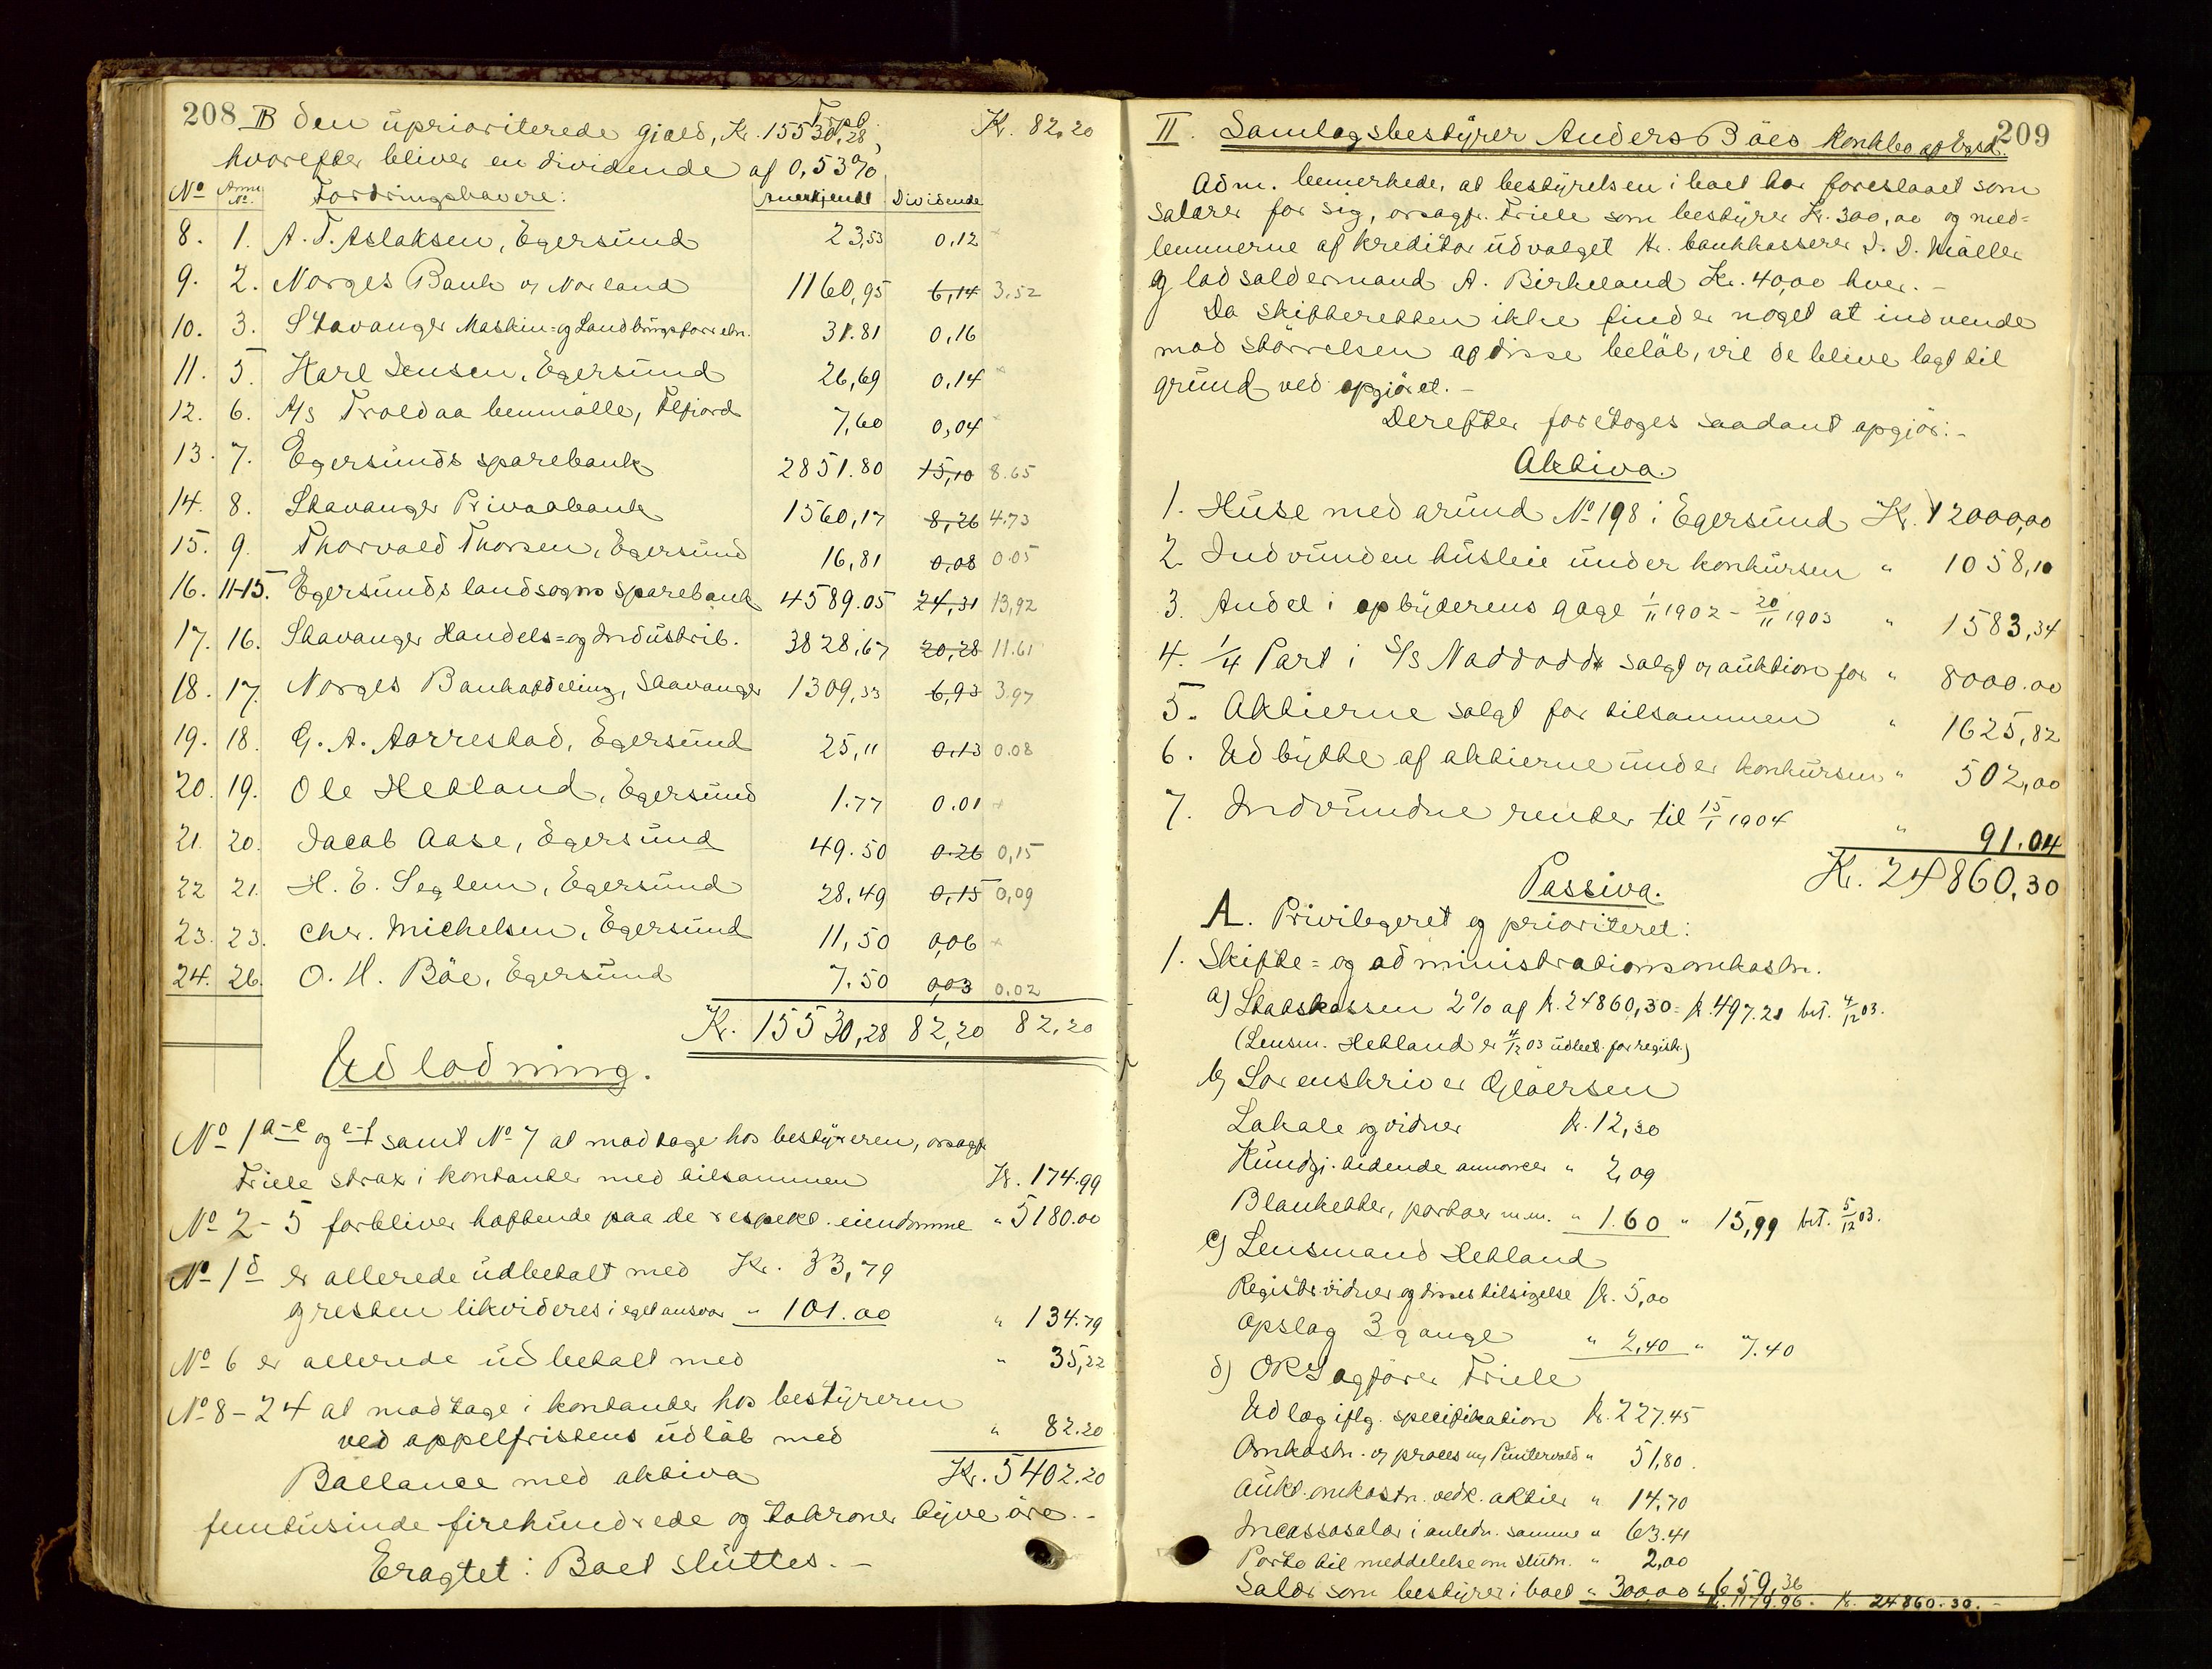 208 B den uprioriterede gjæld, Kr. 15530,28, Trpt. Kr. 82,20
hvorefter bliver en dividende af 0,53%
No Anm. No. Fordringshavere: Anerkjendt Dividende
8. 1. A. T. Aslaksen, Egersund 23,53 0,12
9. 2. Norges Bank og Norland 1160,95 6,14 3,52
10. 3. Stavanger Maskin- og Landbrugsforretn. 31.81 0,16
11. 5. Karl Jensen, Egersund 26,69 0,14
12. 6. A/s Troldaa benmølle, 7,60 0,04
13. 7. Egersunds sparebank 2851.80 15,10 8.65
14. 8. Stavanger Privatbank 1560,17 8,26 4.73
15. 9. Thorvald Thorsen, Egersund 16,81 0,08 0.05
16. 11-15. Egersunds landsogns sparebank 4589.05 24,31 13,92
17. 16. Stavanger Handels- og Industrib. 3828,67 20,28 11.61
18. 17. Norges Bankafdeling, Stavanger 1309,33 6,93 3.97
19. 18. G. A. Aarrestad, Egersund 25,11 0.13 0.08
20. 19. Ole Hetland, Egersund 1.77 0.01
21. 20. Jacob Aase, Egersund 49.50 0.26 0,15
22 21. H. E. Seglem, Egersund 28.49 0,15 0,09
23. 23. Chr. Michelsen, Egersund 11,50 0,06
24. 26. O. H. Bøe, Egersund 7.50 0,03 0.02
Kr. 15530,28 82,20 82,20
Udlodning.
No 1 a-c og e-f samt No 7 at modtage hos bestyreren, orsagf.
Friele strax i kontanter med tilsammen Kr. 174.99
No 2-5 forbliver heftende paa de respekt. eiendomme " 5180.00
No 1 d er allerede udbetalt med Kr. 33,79
og resten likvideres i eget ansvar " 101.00 " 134.79
No 6 er allerede udbetalt med " 35,22
No 8-24 at modtage i kontanter hos bestyreren
ved appelfristens udløb med " 82.20
Ballance med aktiva Kr. 5402.20
femtusinde firehundrede og tokroner tyve øre.-
Eragtet: Boet sluttes.-
II. Samlagsbestyrer Anders Bøes Konkbo af Egsd. 209
Adm. bemerkede, at bestyrelsen i boet har foreslaaet som
salærer for sig, orsagfr. Friele som bestyrer Kr. 300,00 og med-
lemmerne af kreditorudvalget Hr. bankkasserer D. D. Møller
og lodsoldermand A. Birkeland Kr. 40,00 hver.-
Da skifteretten ikke finder noget at indvende
mod størrelsen af disse beløb, vil de blive lagt til
grund ved opgjøret.-
Derefter foretoges saadant opgjør:-
Aktiva.
1. Huse med grund No 198 i Egersund Kr. 12000,00
2. Indvunden husleie under konkursen " 1058,10
3. Andel i opbyderens gage 1/11 1902 - 20/11 1903 " 1583,34
4. 1/4 Part i S/s Naddodd solgt og auktion for " 8000.00
5. Aktierne solgt for tilsammen " 1625,82
6. Udbytte af aktierne under konkursen " 502,00
7. Indvundne renter til 15/1 1904 " 91.04
Kr. 24860,30
Passiva.
A. Privilegeret og prioriteret:
1. Skifte- og administrationsomkostn.
a) Statskassen 2% af k. 24860,30 = k. 497.21 bet. 4/12 03.
(Lensm. Hetland er 4/12 03 udbet. for registr.)
b) Sorenskriver Gjløersen
Lokale og vidner k. 12,30
Kundgj. tidende annoncer " 2,09
Blanketter, portoer m.m. " 1.60 " 15,99 bet. 5/12 03.
c) Lensmand Hetland
Registr. vidner og disses tilsigelse k. 5,00
Opslag 3 gange " 2,40 " 7.40
d) ORSagfører Friele
Udlæg iflg. specifikation k. 227.45
Omkostn. og proces " 51,80.
Aukt. omkostn. vedk. aktier " 14,70
Incassosalær i anledn. samme " 63.41
Porto til meddelelse om slutn. " 2,00
Salær som bestyrer i boet " 300,00 " 659,36
k. 1179.96. k. 24860.30.-